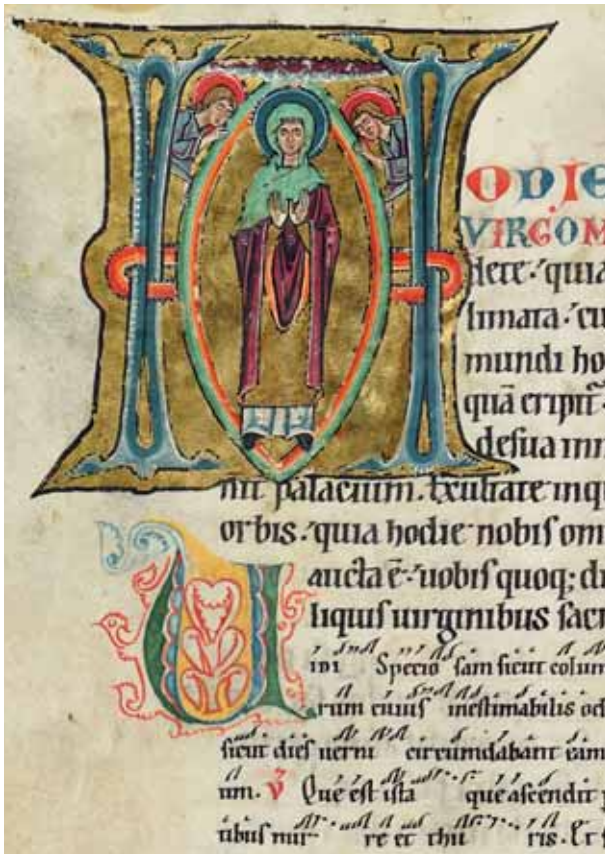 HODIE
VIRGO M
dere. quia
limata. cu
mundi ho
quā eripit.
de sua inn
nit palacium. Exultate inq
orbis. quia hodie nobis om
aucta ē. uobis quoq; di
liquis uirginibus sacr
Vidi Specio sam sicut colum
rum cuius inestimabilis od
sicut dies uerni circumdabant eam
um. V Que est ista que ascendit
ibus mir re et thu ris. Et